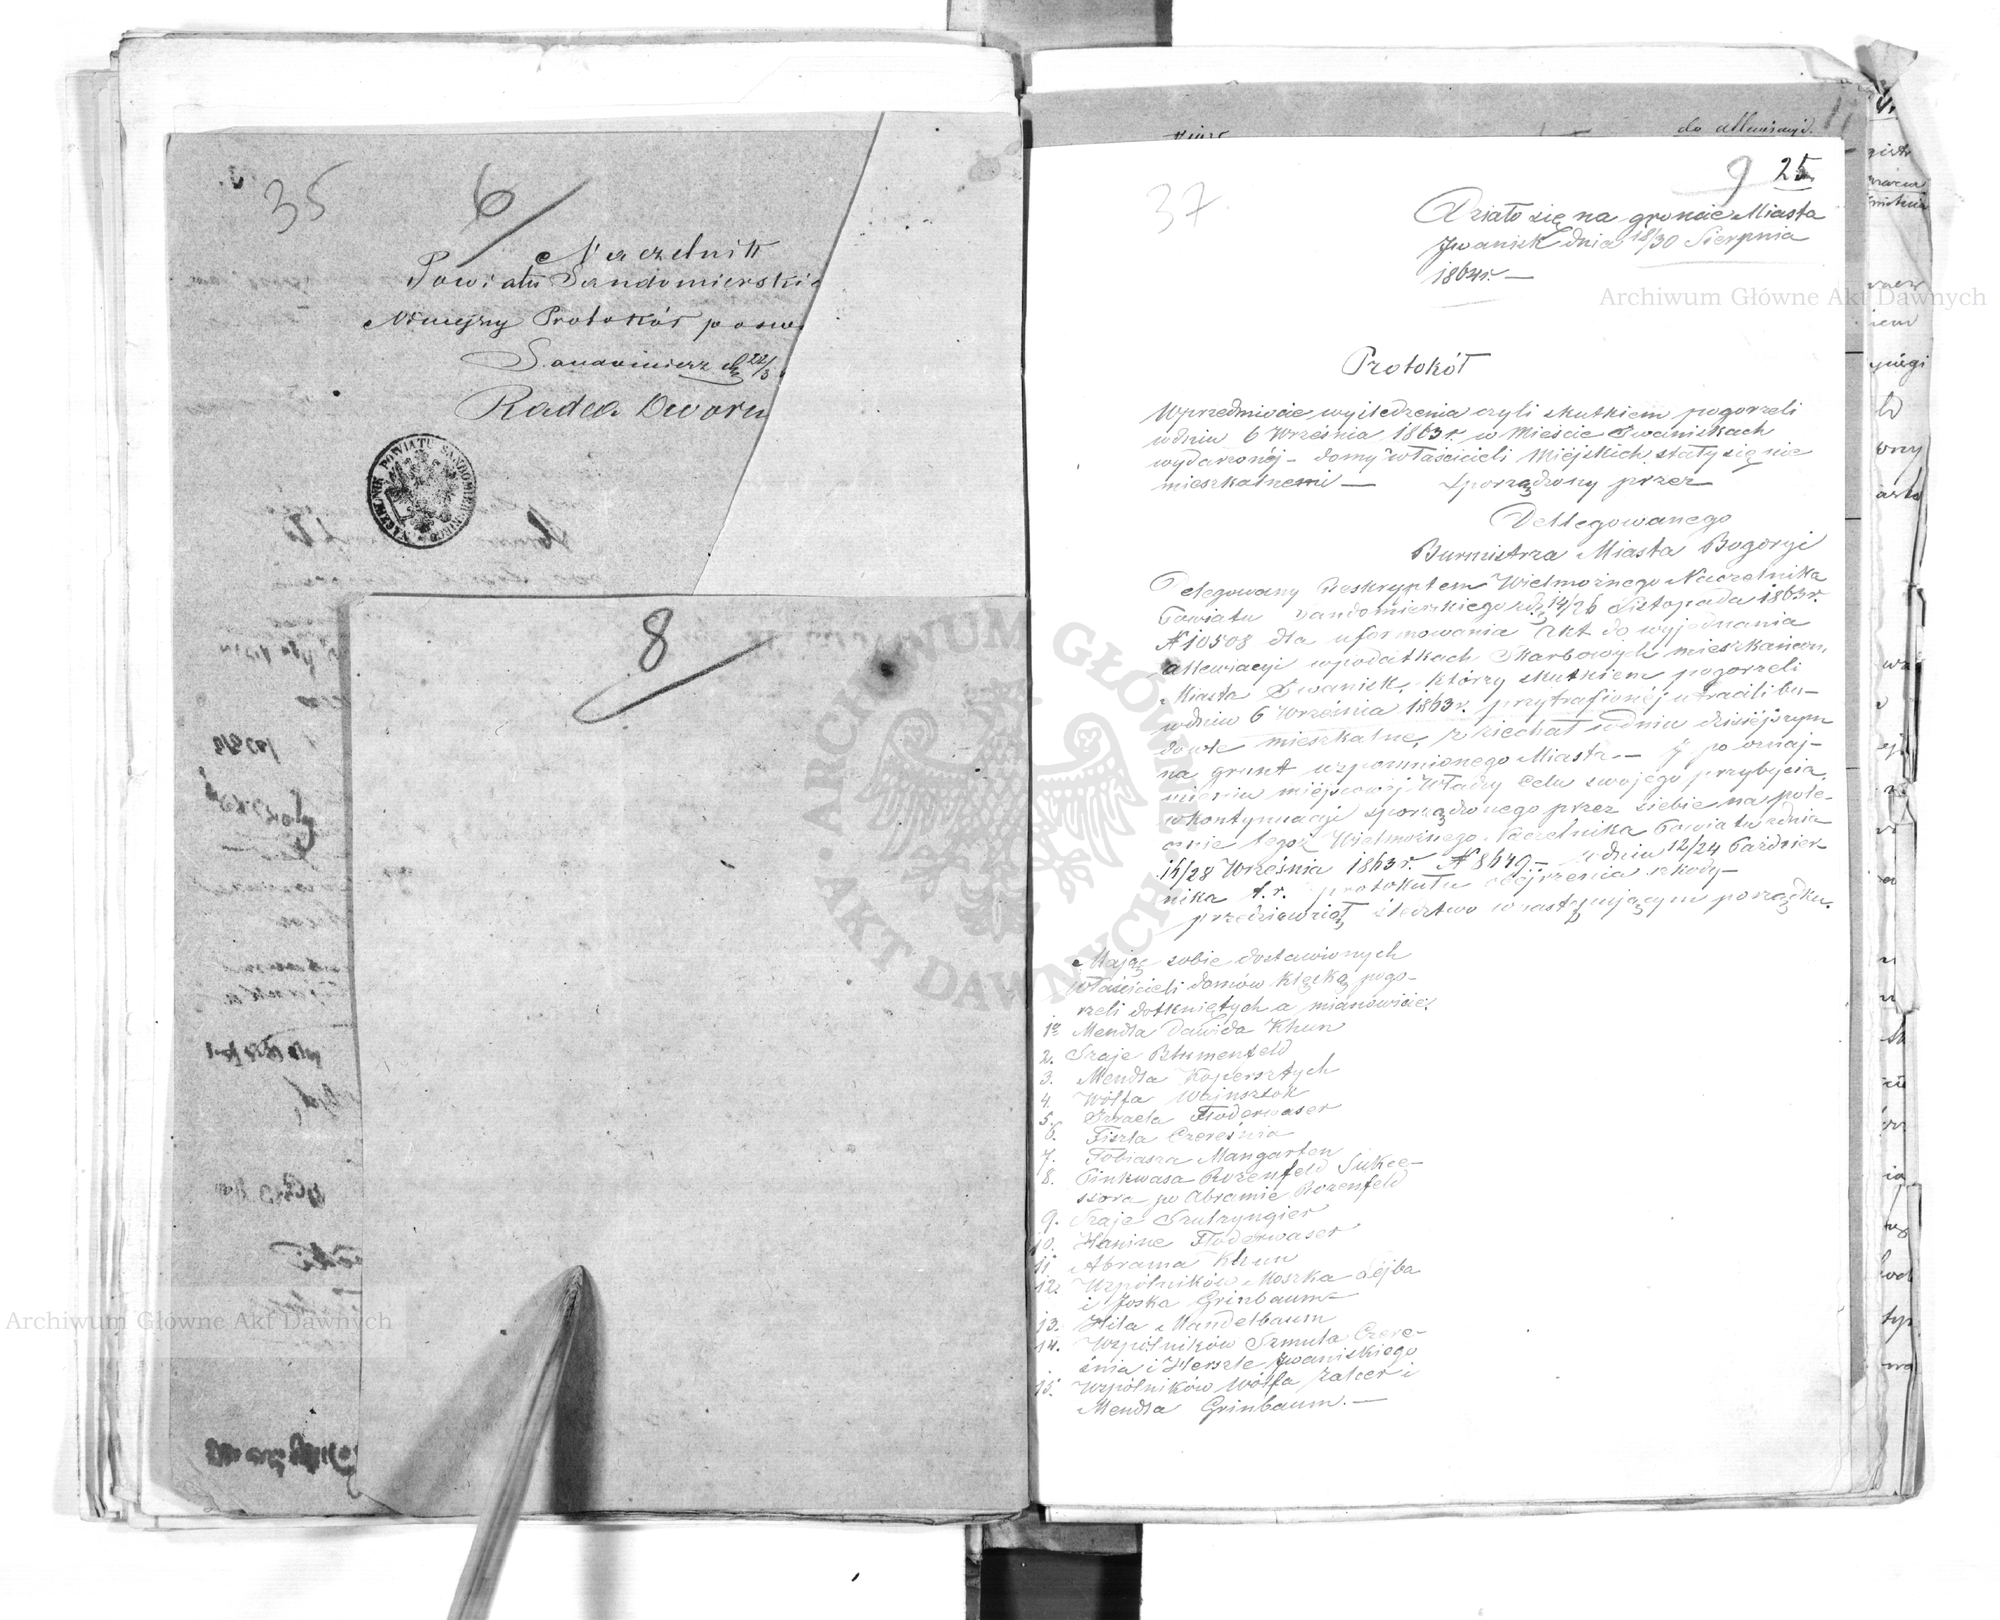 35
6
Naczelnik
Powiatu Sandomierskie
Niniejszy Protokół posw
Sandomierz d 22/3
Radca Dworu
NACZELNIK POWIATU SANDOMIERSKIEGO
8
do allewiacyi
37
9 25
Działo się na gruncie Miasta
Jwanisk dnia 18/30 Sierpnia
1864r. —
Protokół
Wprzedmiocie wyśledzenia czyli skutkiem pogorzeli
wdniu 6 Września 1863r. w Mieście Jwaniskach
wydarzonéj — domy właścicieli Miejskich stały się nie
mieszkalnemi — Sporządzony przez
Dellegowanego
Burmistrza Miasta Bogoryi
Delegowany Reskryptem Wielmożnego Naczelnika
Powiatu Sandomierskiego zd. 14/26 Listopada 1863r.
N 10508 dla uformowania Akt do wyjednania
allewiacyi wpodatkach Skarbowych mieszkańcom
Miasta Jwanisk, którzy skutkiem pogorzeli
wdniu 6 Września 1863r. przytrafionéj utracili bu—
dowle mieszkalne, zjechał wdniu dzisiéjszym
na grunt wspomnionego Miasta. — J po oznaj—
mieniu miejscowéj Władzy Celu swojego przybycia,
wkontynuacyi sporządzonego przez siebie na pole—
cenie tegoż Wielmożnego Naczelnika Powiatu zdnia
16/28 Września 1863r. N 8649 — wdniu 12/24 Paździer
nika t. r. protokułu obejrzenia szkody —
przedsięwziął śledztwo wnastępującym porządku.
Mając sobie dostawionych
Właścicieli domów klęską pogo—
rzeli dotkniętych a mianowicie:
1o Mendla Dawida Khun
2. Szaje Blumenfeld
3. Mendla Kopersztych
4. Wolfa Wainsztok
5. Izraela Floderwaser
6. Fiszla Czereśnia
7. Tobiasza Mangarten
8. Pinkwasa Rozenfeld Sukce—
ssora po Abramie Rozenfeld
9. Szaje Szulzyngier
10. Floderwaser
11 Abrama Khun
12. Wspólników Moszka Lejba
i Joska Grinbaum
13. Hila Mandelbaum
14. Wspólników Szmula Czere—
śnia i Herszle Jwaniskiego
15. Wspólników Wolfa Zalcer i
Mendla Grinbaum. —
Archiwum Główne Akt Dawnych
Archiwum Główne Akt Dawnych
ARCHIWUM GŁÓWNE AKT DAWNYCH